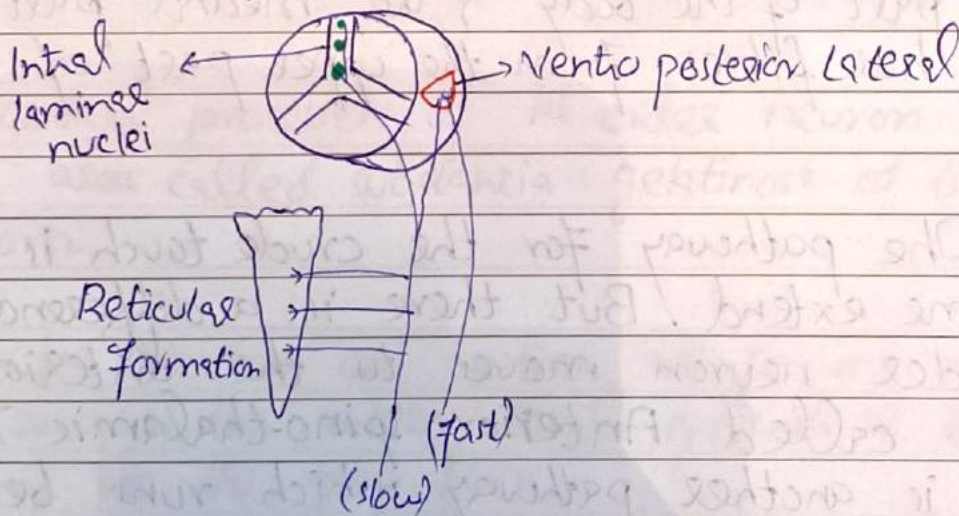 Intral
laminar
nuclei
Ventro posterior Lateral
Reticular
formation
(fast)
(slow)